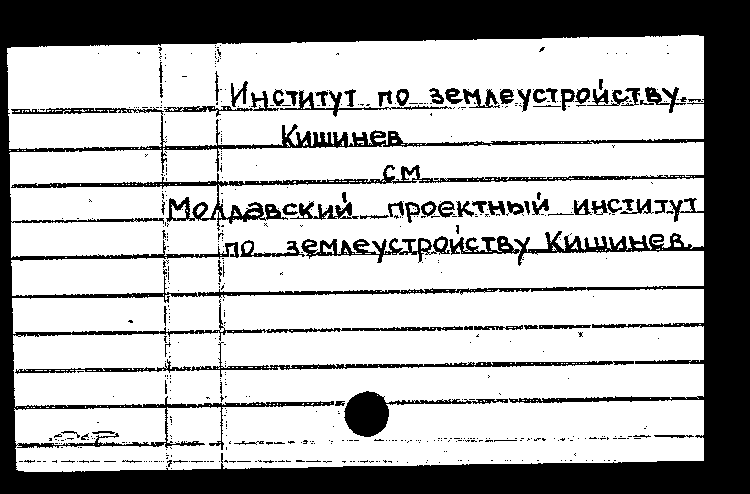 Институт по землеустройству.
Кишинев
см
Молдавский проектный институт
по землеустройству Кишинев.